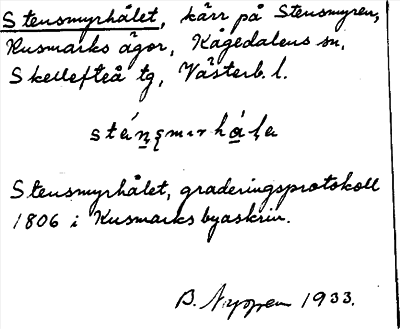 Stensmyrhålet, kärr på Stensmyren,
Kusmarks ägor, Kågedalens sn,
Skellefteå tg, Västerb. l.
Stensmyrhålet, graderingsprotokoll
1806 i Kusmarks byaskrin.
B. 1933.